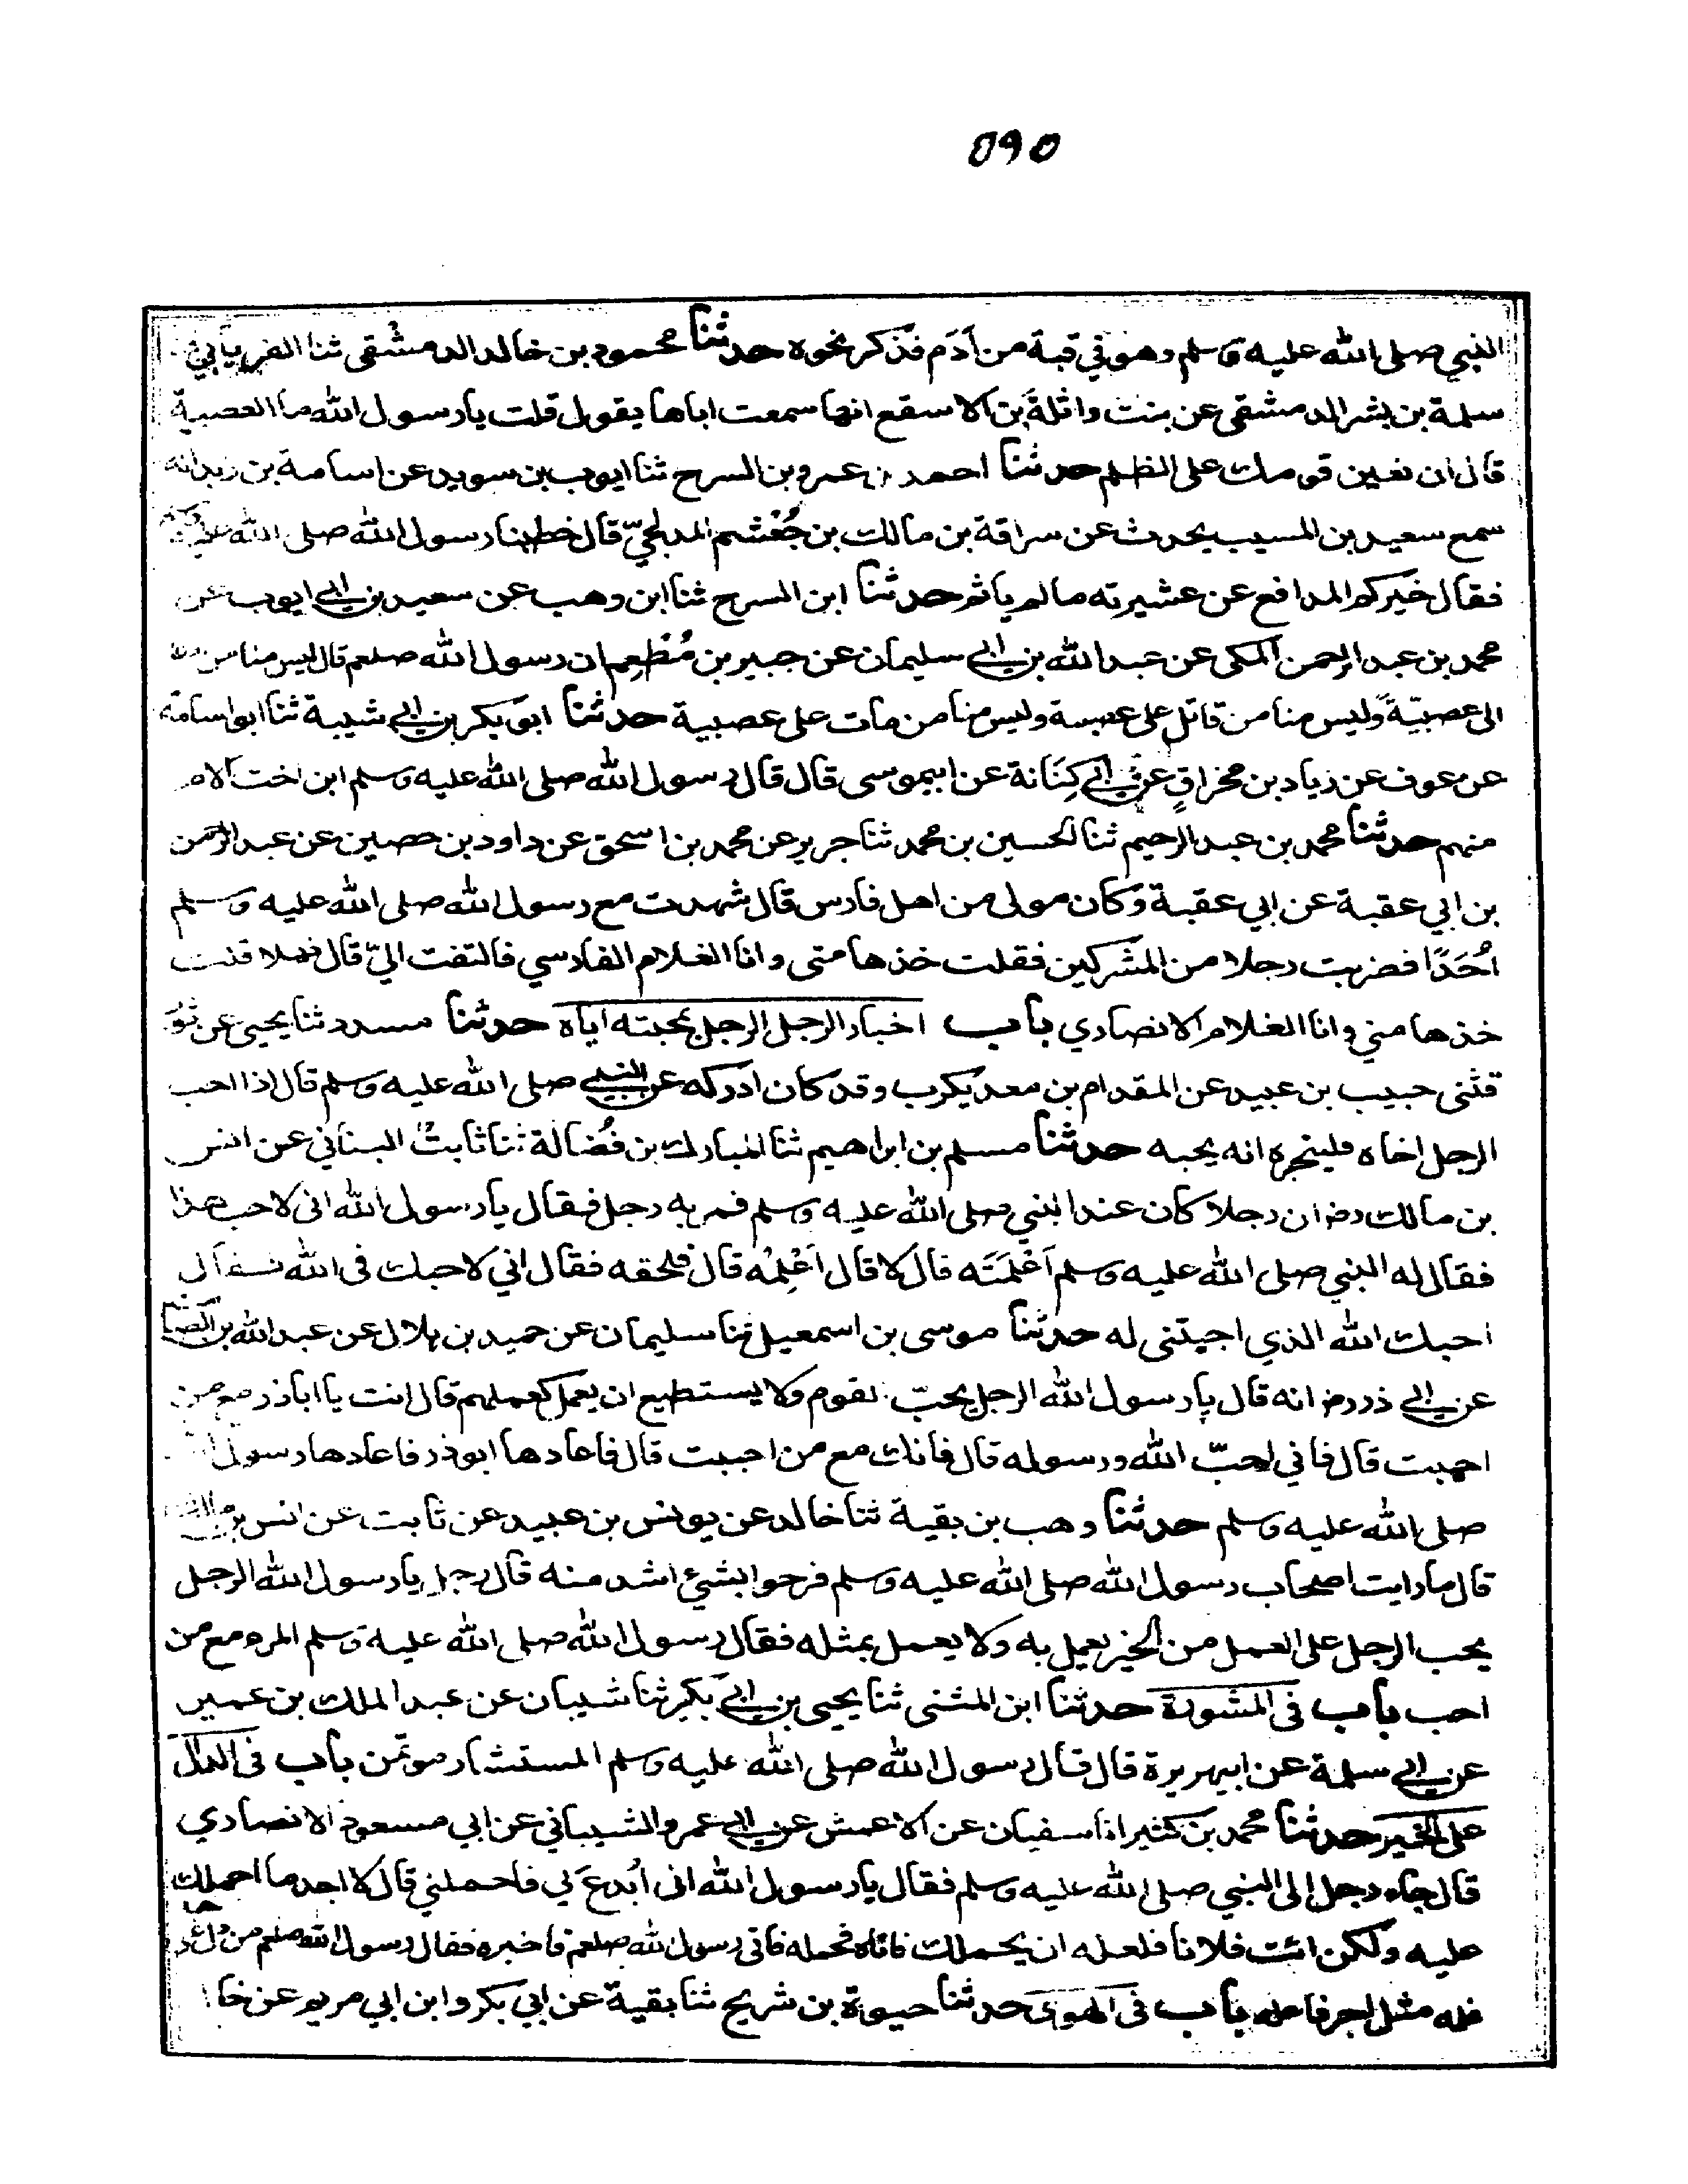 ٥٩٥
النبي صلى الله عليه وسلم وهو في قبة من أَدَم فذكر نحوه حدثنا محمود بن خالد الدمشقى ثنا الفريابي ثنا
سلمة بن بشر الدمشقى عن بنت واثلة بن الاسقع انها سمعت اباها يقول قلت يا رسول الله ما العصبية
قال ان تعين قومك على الظلم حدثنا احمد بن عمرو بن السرح ثنا ايوب بن سويد عن اسامة بن زيد انه
سمع سعيد بن المسيب يحدث عن سراقة بن مالك بن جُعْشم المدلجيّ قال خطبنا رسول الله صلى الله عليه وسلم
فقال خَيركم المدافع عن عشيرته مالم ياثم حدثنا ابن السرح ثنا ابن وهب عن سعيد بن ابي ايوب عن
محمد بن عبد الرحمن المكى عن عبد الله بن ابي سليمان عن جبير بن مُطْعِم ان رسول الله صلعم قال ليس منا من دعا
الى عصبيّةً وليس منا من قاتل على عصبية وليس منا من مات على عصبية حدثنا ابو بكر بن ابي شيبة ثنا ابو اسامة
عن عوف عن زياد بن مخراقٍ عن ابي كِنَانة عن ابيموسى قال قال رسول الله صلى الله عليه وسلم ابن اخت القوم
منهم حدثنا محمد بن عبد الرحيم ثنا لحسين بن محمد ثنا جرير عن محمد بن اسحق عن داود بن حصين عن عبد الرحمن
بن ابي عقبة عن ابي عقبة وكان مولى من اهل فارس قال شهدت مع رسول الله صلى الله عليه وسلم
أُحَدًا فضربت رجلا من المشركين فقلت خذها منى وانا الغلام الفارسي فالتفت اليّ قال فهلا قلت
خذها مني وانا الغلام الانصاري باب اخبار الرجل الرجل بمحبته اياه حدثنا مسدد ثنا يحيى عن ثور
قثنى حبيب بن عبيد عن المقدام بن معد يكرب وقد كان ادركه عن النبي صلى الله عليه وسلم قال اذا احب
الرجل اخاه فليخبره انه يحبه حدثنا مسلم بن ابراهيم ثنا المبارك بن فُضالة ثنا ثابتُ البناني عن انس
بن مالك رضـ ان رجلا كان عند النبي صلى الله عليه وسلم فمر به رجل فقال يا رسول الله انى لاحب هذا
فقال له النبي صلى الله عليه وسلم اَعْلَمَتَه قال لا قال اَعْلِمْه قال فلحقه فقال اني لاحبك فى الله فقال
احبك الله الذي احببتنى له حدثنا موسى بن اسمعيل ثنا سليمان عن حميد بن هلال عن عبد الله بن الصامت
عن ابي ذر رضـ انه قال يا رسول الله الرجل يحبّ القوم ولا يستطيع ان يعمل كعملهم قال انت يا ابا ذر مع من
احببت قال فاني احبّ الله ورسوله قال فانك مع من احببت قال فاعادها ابو ذر فاعادها رسول الله
صلى الله عليه وسلم حدثنا وهب بن بقية ثنا خالد عن يونس بن عبيد عن ثابت عن انس بن مالك
قال ما رايت اصحاب رسول الله صلى الله عليه وسلم فرحوا بشئ اشد منه قال رجل يا رسول الله الرجل
يحب الرجل على العمل من الخير يعمل به ولا يعمل بمثله فقال رسول الله صلى الله عليه وسلم المرء مع من
احب باب فى المشورة حدثنا ابن المثنى ثنا يحيى بن ابي بكير ثنا شيبان عن عبد الملك بن عمير
عن ابي سلمة عن ابيهريرة قال قال رسول الله صلى الله عليه وسلم المستشار موتمن باب فى الدال
على الخير حدثنا محمد بن كثير انا سفيان عن الاعمش عن ابي عمرو الشيباني عن ابي مسعود الانصاري
قال جاء رجل الى النبي صلى الله عليه وسلم فقال يا رسول الله انى اُبدعَ بي فاحملني قال لا اجد ما احملك
عليه ولكن ائت فلانا فلعله ان يحملك فاتاه فحمله فاتى رسول الله صلعم فاخبره فقال رسول الله صلعم من دل على خير
فله مثل اجر فاعله باب فى الهوى حدثنا حيوة بن شريح ثنا بقية عن ابي بكر وابن ابي مريم عن خا